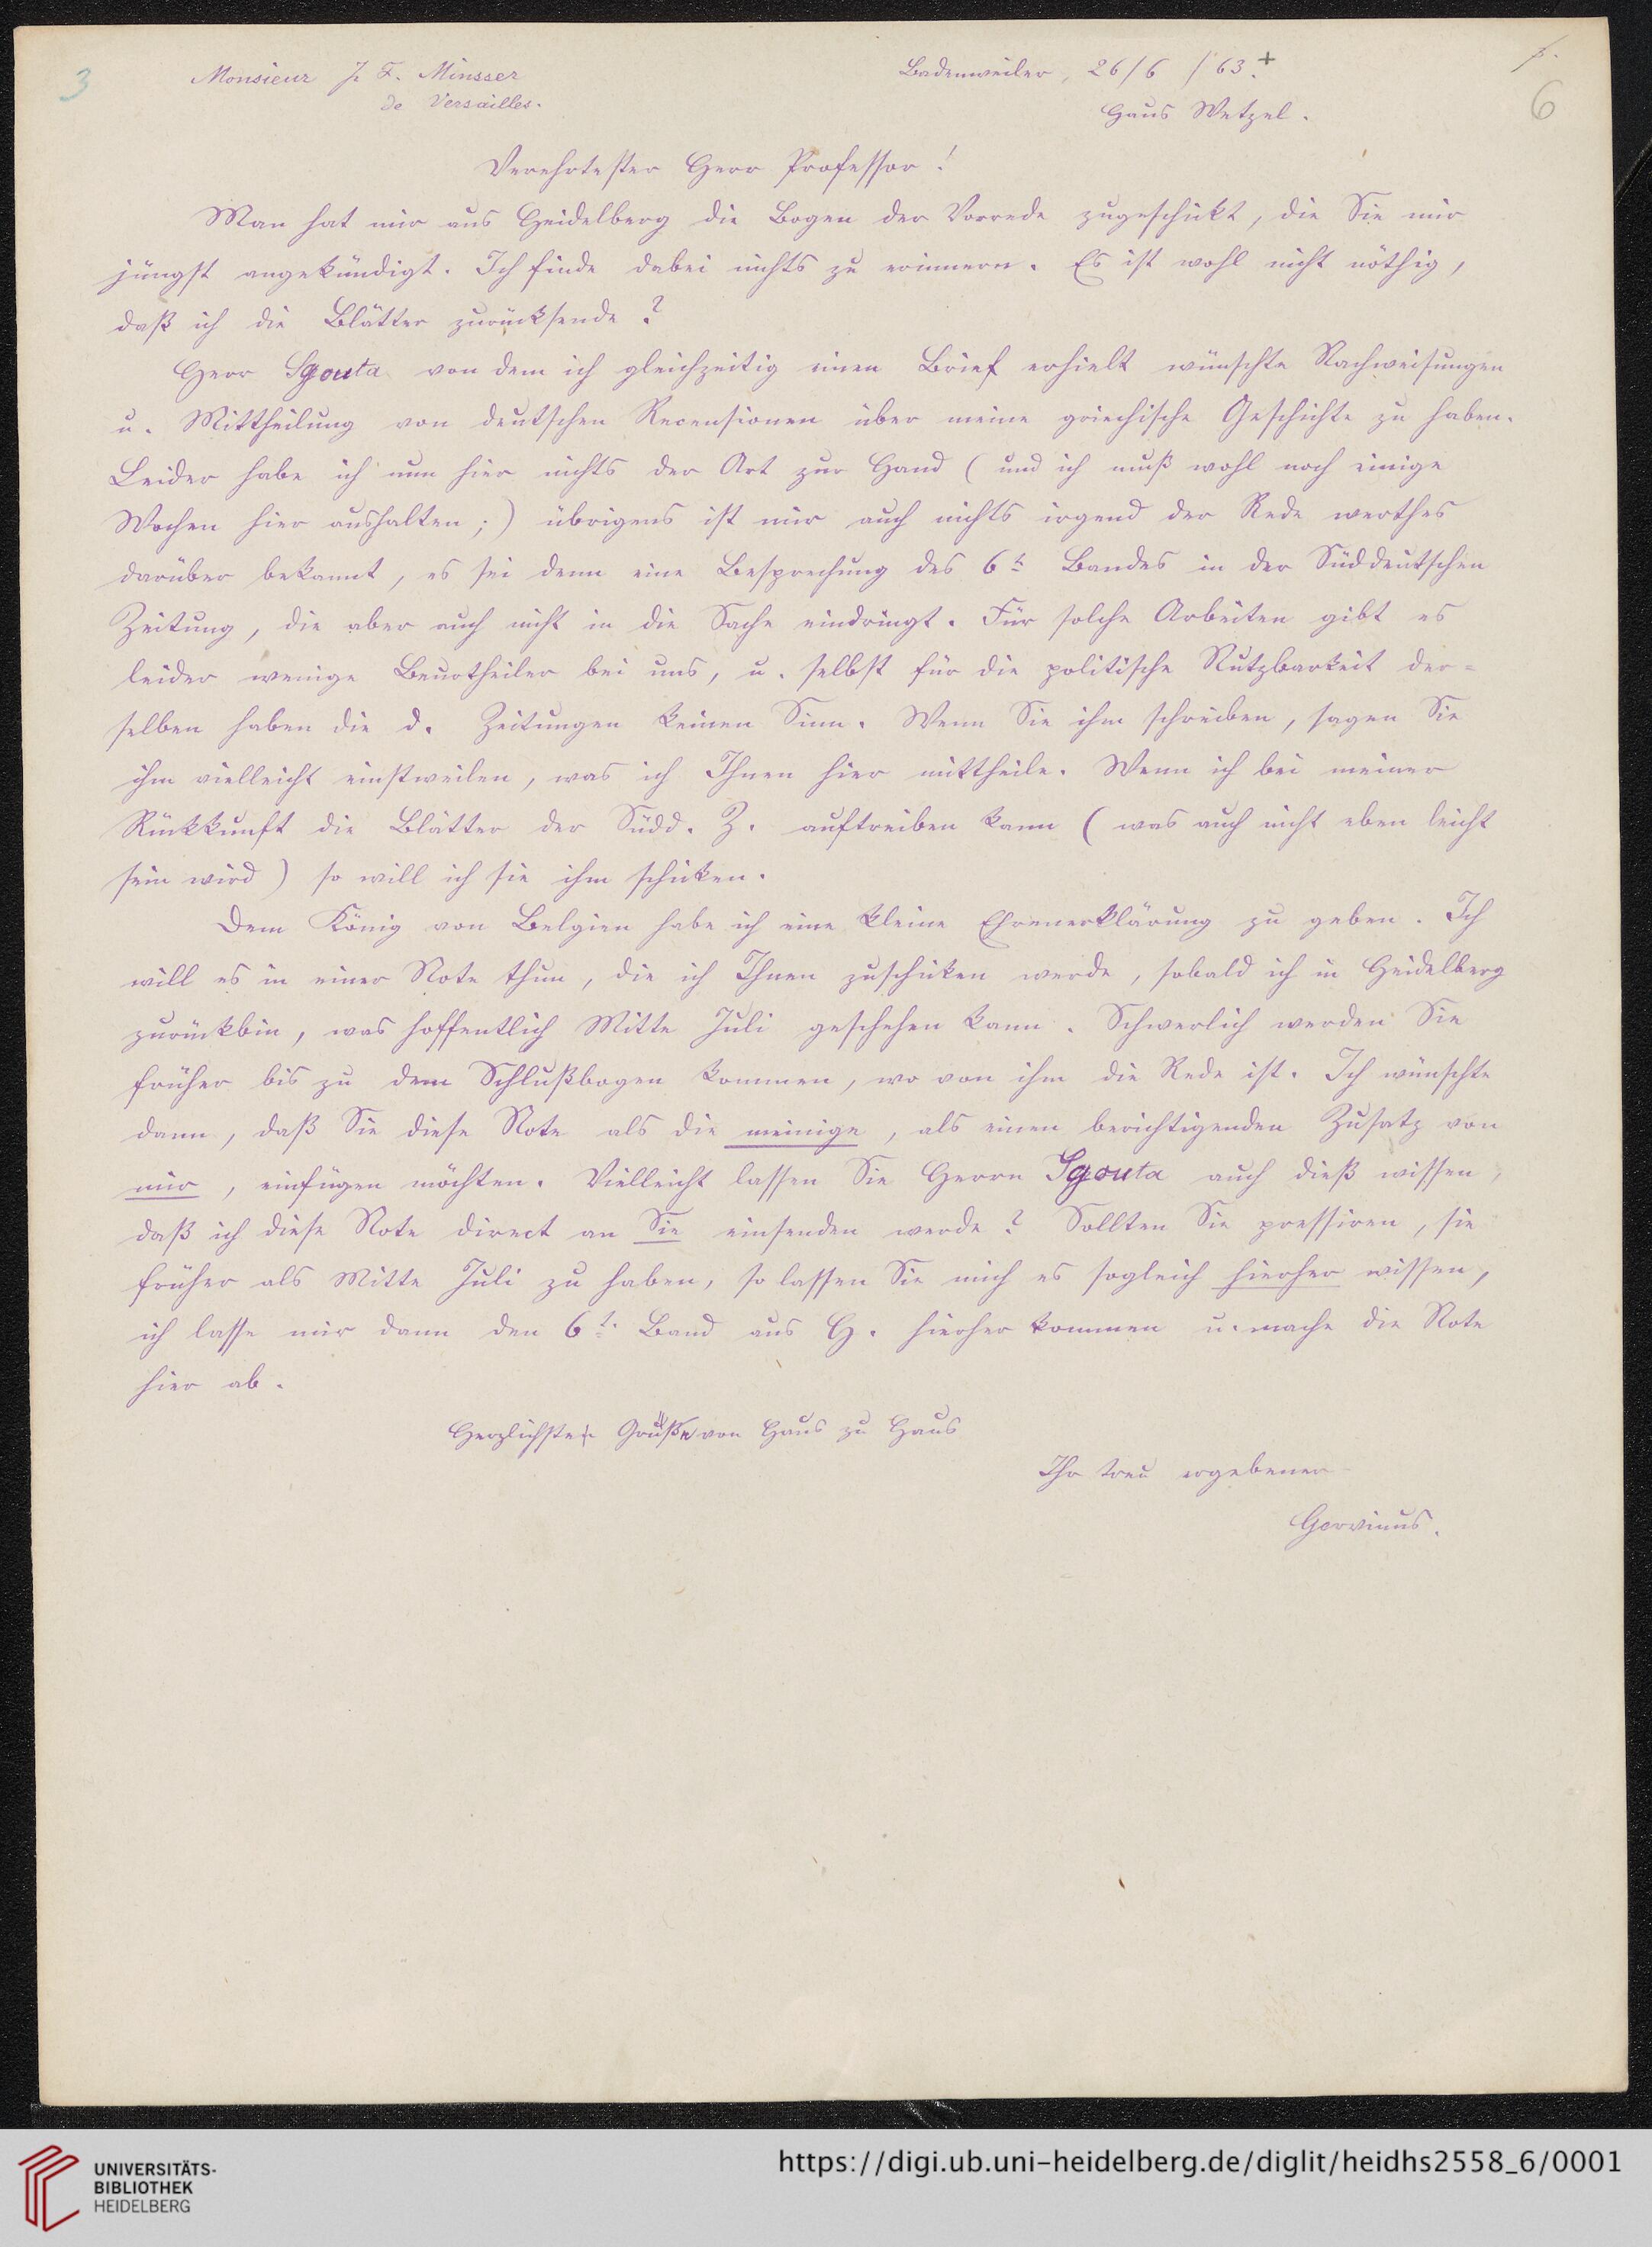 3
Monsieur J. F. Minsser
de Versailles.
Badenweiler, 26/6 /63.+
6
Haus Wetzel.
Verehrtester Herr Professor!
Man hat mir aus Heidelberg die Bogen der Vorrede zugeschickt, die Sie mir
jüngst angekündigt. Ich finde dabei nichts zu erinnern. Es ist wohl nicht nöthig,
daß ich die Blätter zurücksende?
Herr Sgouta von dem ich gleichzeitig einen Brief erhielt wünschte Nachweisungen
u. Mittheilung von deutschen Recensionen über meine griechische Geschichte zu haben.
Leider habe ich nun hier nichts der Art zur Hand (und ich muß wohl noch einige
Wochen hier aushalten;) übrigens ist mir auch nichts irgend der Rede werthes
darüber bekannt, es sei denn eine Besprechung des 6t Bandes in der Süddeutschen
Zeitung, die aber auch nicht in die Sache eindringt. Für solche Arbeiten gibt es
leider wenige Beurtheiler bei uns, u. selbst für die politische Nutzbarkeit der=
selben haben die d. Zeitungen keinen Sinn. Wenn Sie ihm schreiben, sagen Sie
ihm vielleicht einstweilen, was ich Ihnen hier mittheile. Wenn ich bei meiner
Rückkunft die Blätter der Südd. Z. auftreiben kann (was auch nicht eben leicht
sein wird) so will ich sie ihm schicken.
Dem König von Belgien habe ich eine kleine Ehrenerklärung zu geben. Ich
will es in einer Note thun, die ich Ihnen zuschicken werde, sobald ich in Heidelberg
zurückbin, was hoffentlich Mitte Juli geschehen kann. Schwerlich werden Sie
früher bis zu dem Schlußbogen kommen, wo von ihm die Rede ist. Ich wünschte
dann, daß Sie diese Note als die meinige, als einen berichtigenden Zusatz von
mir, einfügen möchten. Vielleicht lassen Sie Herrn Sgouta auch dieß wissen,
daß ich diese Note direct an Sie einsenden werde? Sollten Sie pressiren, sie
früher als Mitte Juli zu haben, so lassen Sie mich es sogleich hierher wissen,
ich lasse mir dann den 6t. Band aus H. hierher kommen u. mache die Note
hier ab.
Herzlichste Grüße von Haus zu Haus
Ihr treu ergebener
Gervinus.
UNIVERSITÄTS-
BIBLIOTHEK
HEIDELBERG
https://digi.ub.uni-heidelberg.de/diglit/heidhs2558_6/0001